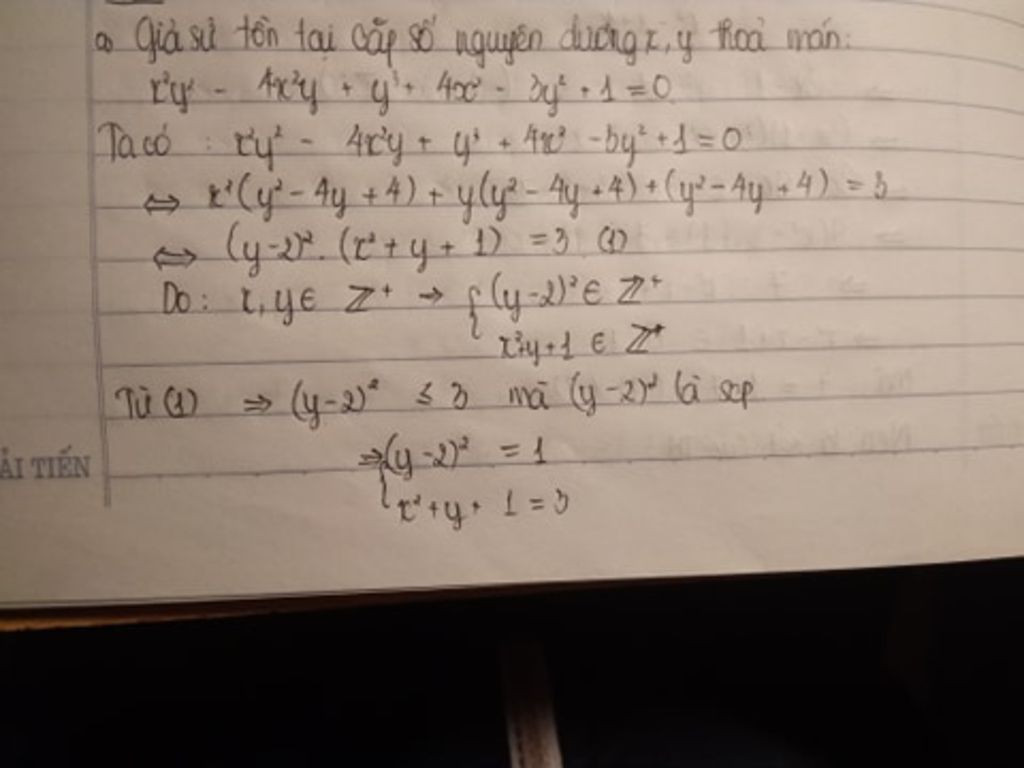 a) Giả sử tồn tại cặp số nguyên dương x, y thoả mãn:
x²y² - 4x²y + y³ + 4x² - 3y² + 1 = 0
Ta có : x²y² - 4x²y + y³ + 4x² - 3y² + 1 = 0
⇔ x²(y² - 4y + 4) + y(y² - 4y + 4) + (y² - 4y + 4) = 3
⇔ (y-2)² . (x² + y + 1) = 3 (1)
Do : x, y ∈ ℤ⁺ → { (y-2)² ∈ ℤ⁺
x²+y+1 ∈ ℤ⁺
Từ (1) ⇒ (y-2)² ≤ 3 mà (y-2)² là scp
⇒ { (y-2)² = 1
x² + y + 1 = 3
ẢI TIẾN